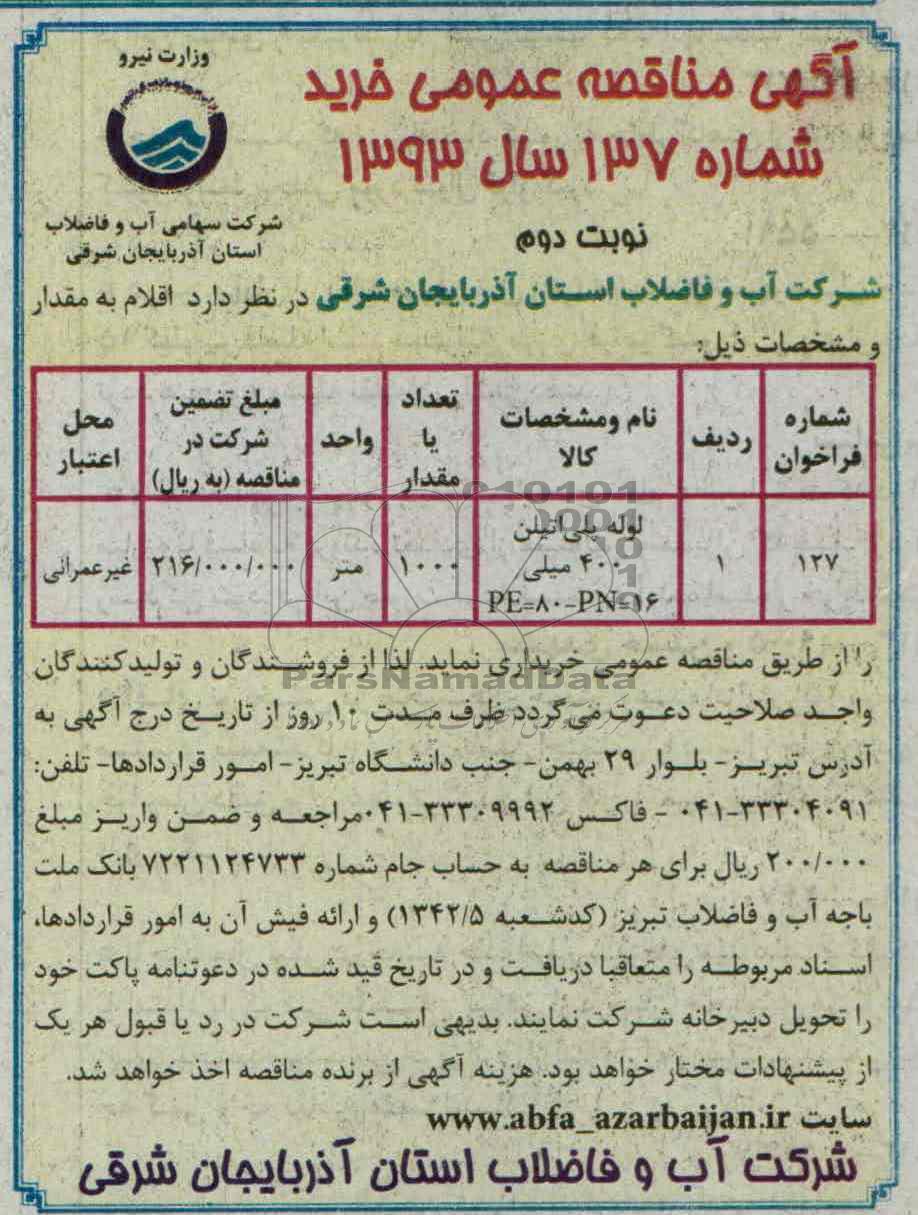 وزارت نیرو
شرکت سهامی آب و فاضلاب
استان آذربایجان شرقی
آگهی مناقصه عمومی خرید
شماره ۱۳۷ سال ۱۳۹۳
نوبت دوم
شرکت آب و فاضلاب استان آذربایجان شرقی در نظر دارد اقلام به مقدار
و مشخصات ذیل:
شماره فراخوان | ردیف | نام ومشخصات کالا | تعداد یا مقدار | واحد | مبلغ تضمین شرکت در مناقصه (به ریال) | محل اعتبار
۱۲۷ | ۱ | لوله پلی اتیلن ۴۰۰ میلی PE=۸۰-PN=۱۶ | ۱۰۰۰ | متر | ۲۱۶/۰۰۰/۰۰۰ | غیرعمرانی
را از طریق مناقصه عمومی خریداری نماید. لذا از فروشندگان و تولیدکنندگان
واجد صلاحیت دعوت می‌گردد ظرف مدت ۱۰ روز از تاریخ درج آگهی به
آدرس تبریز- بلوار ۲۹ بهمن- جنب دانشگاه تبریز- امور قراردادها- تلفن:
۰۴۱-۳۳۳۰۴۰۹۱ - فاکس ۰۴۱-۳۳۳۰۹۹۹۲مراجعه و ضمن واریز مبلغ
۲۰۰/۰۰۰ ریال برای هر مناقصه به حساب جام شماره ۷۲۲۱۱۲۴۷۳۳ بانک ملت
باجه آب و فاضلاب تبریز (کدشعبه ۱۳۴۲/۵) و ارائه فیش آن به امور قراردادها،
اسناد مربوطه را متعاقبا دریافت و در تاریخ قید شده در دعوتنامه پاکت خود
را تحویل دبیرخانه شرکت نمایند. بدیهی است شرکت در رد یا قبول هر یک
از پیشنهادات مختار خواهد بود. هزینه آگهی از برنده مناقصه اخذ خواهد شد.
سایت www.abfa_azarbaijan.ir
شرکت آب و فاضلاب استان آذربایجان شرقی
ParsNamadData